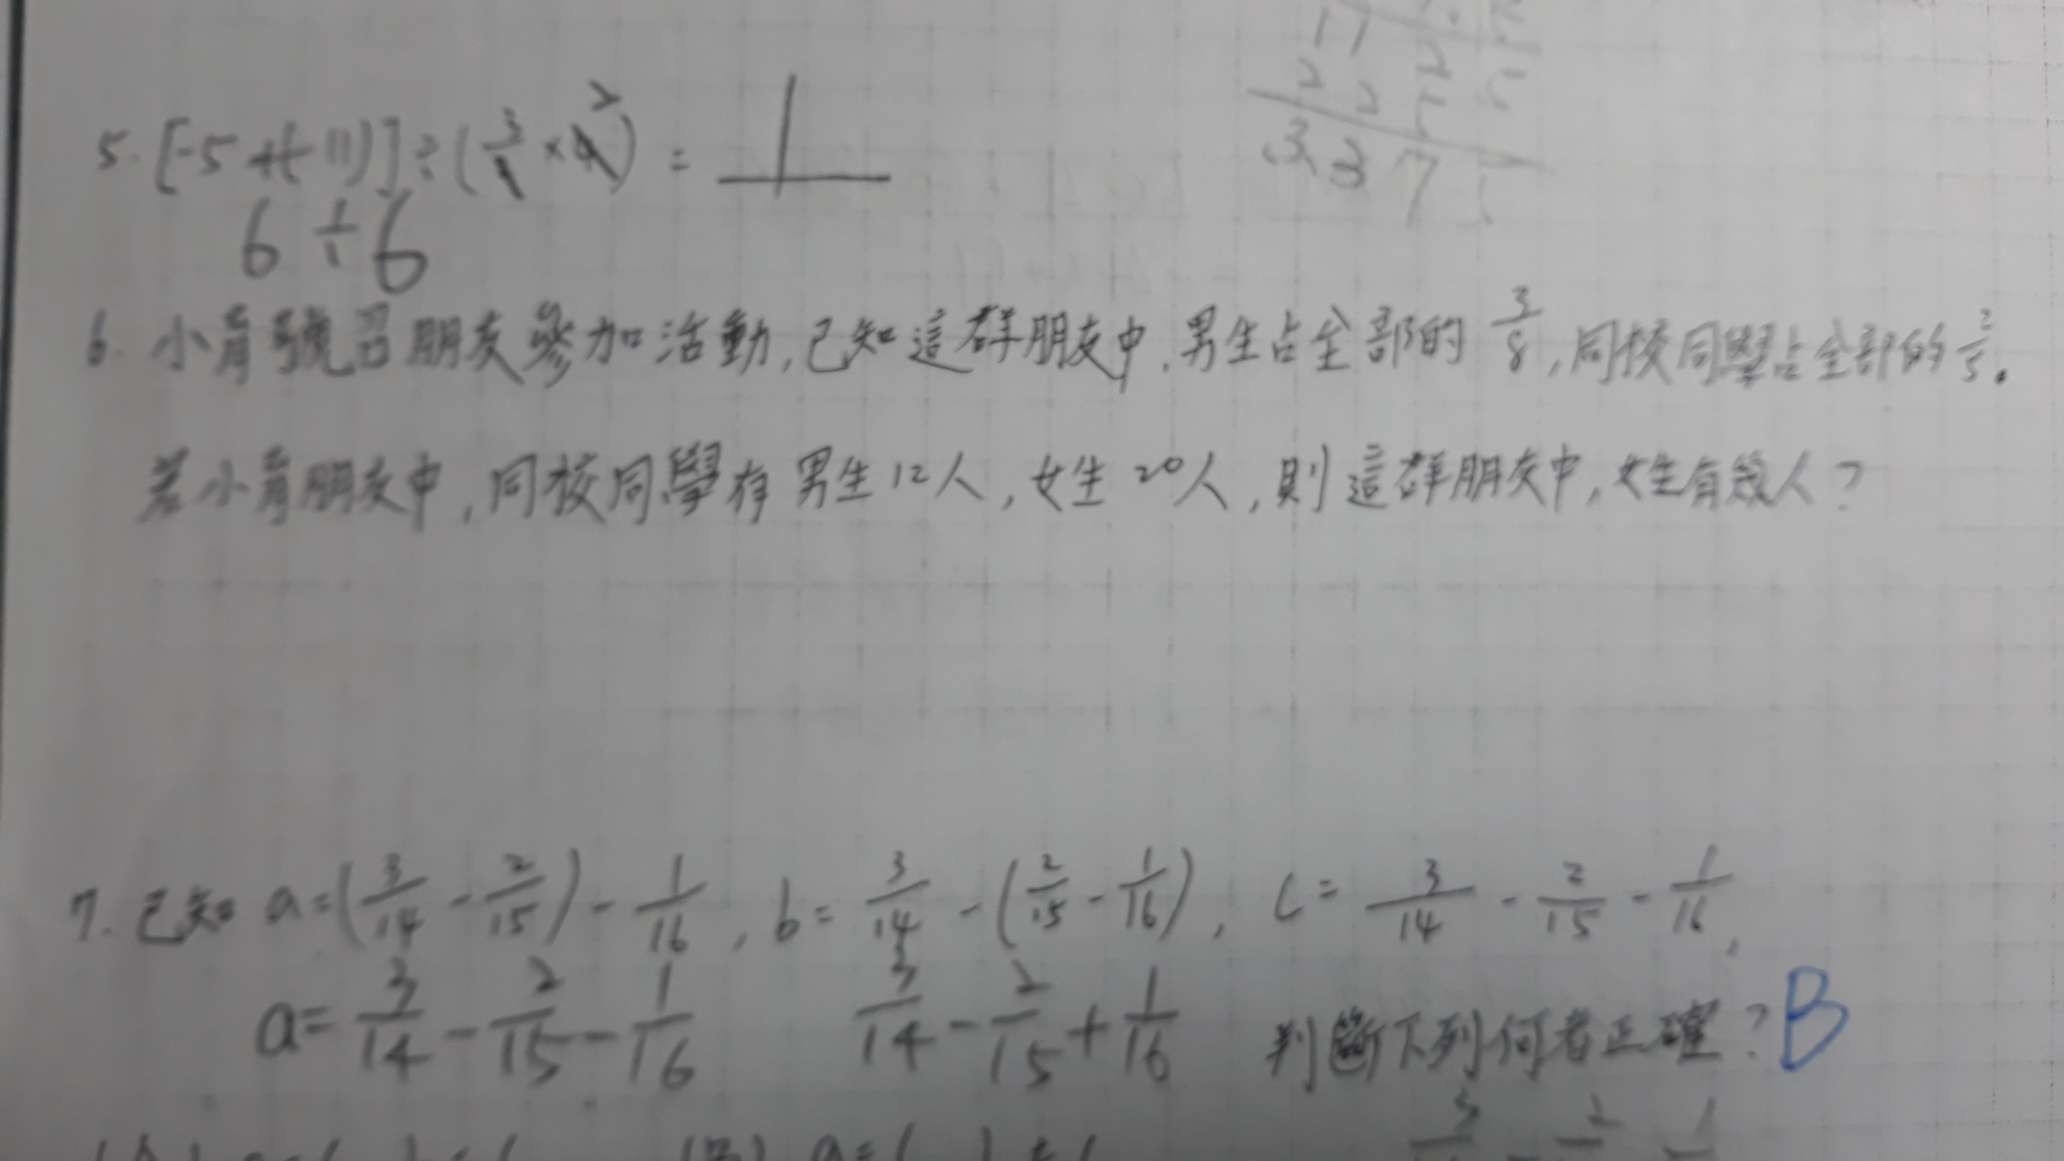 17
2 2 2 5
3 3 7 5
5. [-5+(-11)]÷(3/4×8) = 1
6÷6
6. 小育號召朋友參加活動,已知這群朋友中,男生占全部的 3/8,同校同學占全部的 2/5。
若小育朋友中,同校同學有男生12人,女生20人,則這群朋友中,女生有幾人?
7. 已知 a=(3/14-2/15)-1/16, b=3/14-(2/15-1/16), c=3/14-2/15-1/16,
a=3/14-2/15-1/16 3/14-2/15+1/16 判斷下列何者正確?B